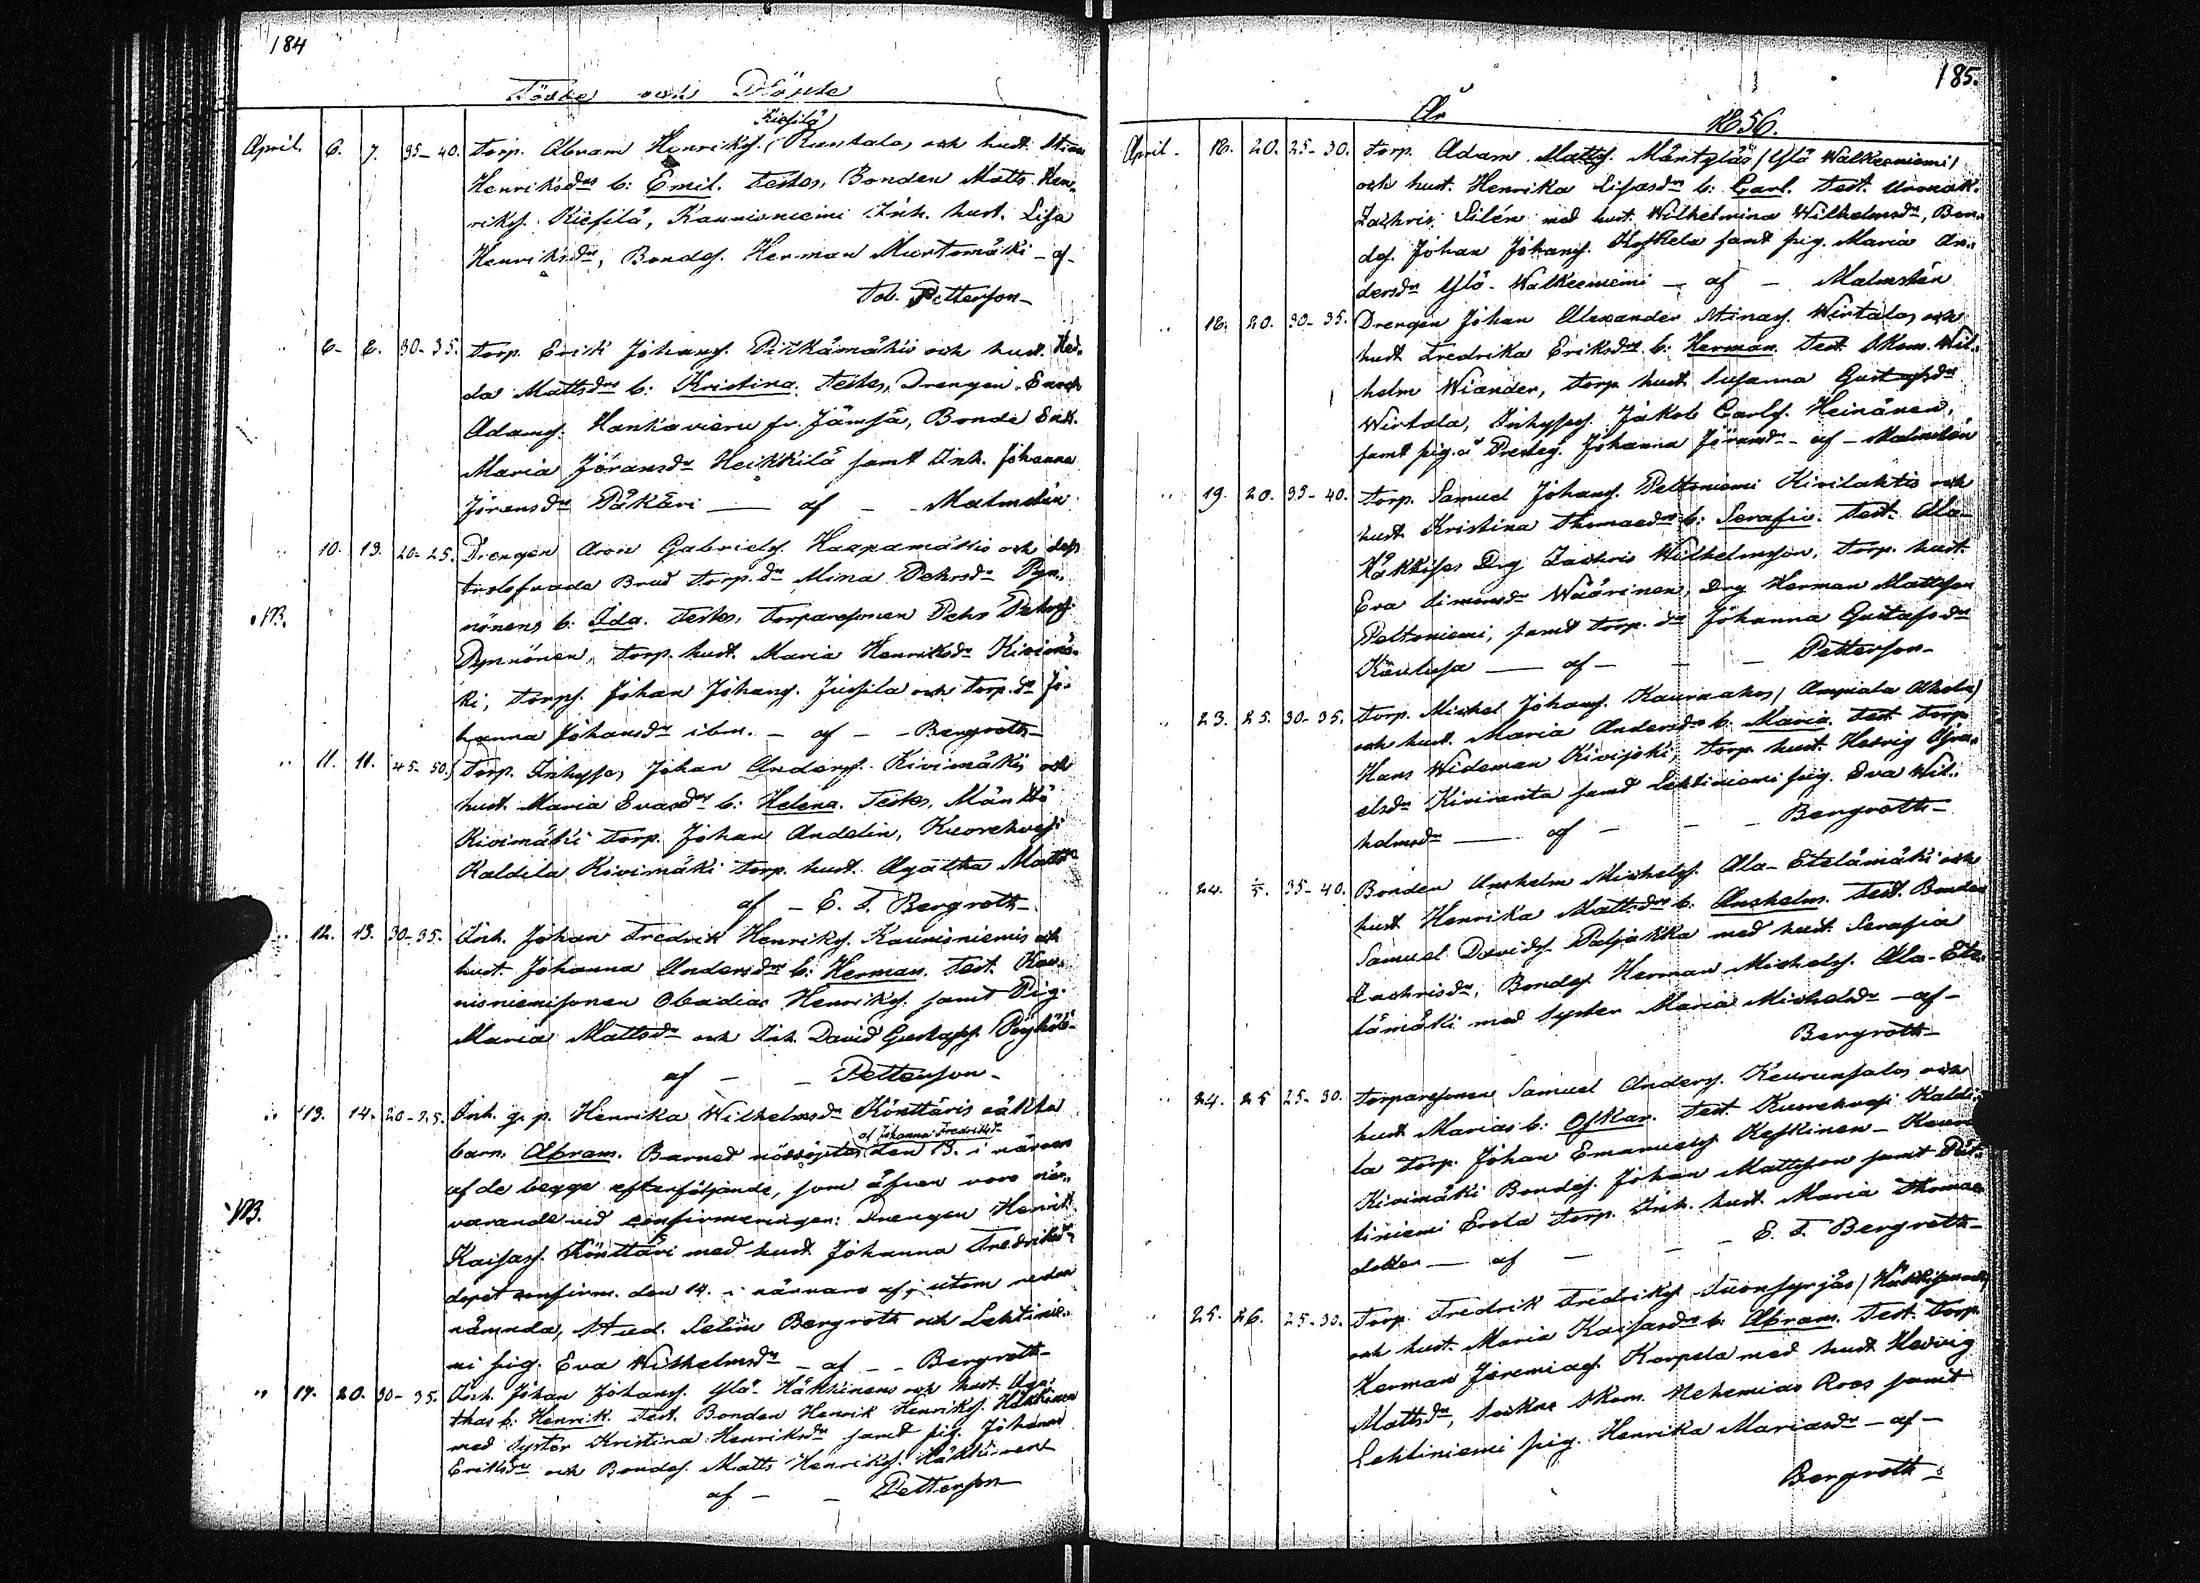 184
Födde och Döpte
Kiefilä)
April. 6. 7. 35-40. Torp. Abram Henriksſ. (Runtala, och hust. Stina
Henriksdrs b: Emil. Testes, Bonden Matts Hen-
riksſ. Kiefilä, Kaunisniemi Inh. hust. Lisa
Henriksdr, Bondeſ. Herman Murtomäki - af -
Tob. Petterſon -
" 6. 6. 30-35. Torp. Erik Johansſ. Pitkämäkis och hust. Hed-
da Mattsdrs b: Kristina. Testes, Drengen Enoch
Adamsſ. Hankavieru fr. Jämsä, Bonde Enk.
Maria Jöransdr Heikkilä samt Inh. Johanna
Jöransdr Päkäri — af - Malmstén
" 10. 13. 20-25. Drengen Aron Gabrielsſ. Haapamäkis och dess
trolofvade Brud Torp. dr Mina Pehrsdr Pyn-
NB. nönens b: Ida. Testes, Torparesonen Pehr Pehrsſ.
Pynnönen, Torp. hust. Maria Henriksdr Kivimä-
ki, Torpſ. Johan Johansſ. Jusfila och Torp. dr Jo-
hanna Johansdr ibm. - af - - Bergroth -
" 11. 11. 45-50. Torp. Inhysses Johan Andersſ. Kivimäkis och
hust. Maria Evasdrs b: Helena. Testes, Mänttä
Kivimäki Torp. Johan Andelin, Kuorehvesi
Kaldila Kivimäki Torp. hust. Agatha Mattsdr
af - E. F. Bergroth -
" 12. 13. 30-35. Inh. Johan Fredrik Henriksſ. Kaunisniemis och
hust. Johanna Andersdrs b: Herman. Test. Kau-
nisniemisonen Obadias Henriksſ. samt Pig.
Maria Mattsdr och Inh. David Gustafsſ. Pöyhölä
af - - Petterſon -
" 13. 14. 20-25. Inh. q. p. Henrika Wilhelmsdr Könttäris oäkta
af Johanna Fredriksdr
barn. Abram. Barnet nöddöptes den 13. i närvaro
af de begge efterföljande, som äfven voro när-
NB. varande vid confirmeringen: Drengen Henrik
Kaisasſ. Könttäri med hust. Johanna Fredriksdr
döpet confirm. den 14. i närvaro af, utom redan
nämnda, Stud. Selim Bergroth och Lehtinie-
mi pig. Eva Wilhelmsdr - af - - Bergroth -
" 17. 20. 30-35. Inh. Johan Johansſ. Ylä-Häkkinens och hust. Aga-
thas b: Henrik. Test. Bonden Henrik Henriksſ. Häkkinen
med Syster Kristina Henriksdr samt pig. Johanna
Eriksdr och Bondeſ. Matts Henriksſ. Häkkinen
af - - Petterſon
185.
År 1856.
April. 18. 20. 25-30. Torp. Adam Mattsſ. Mäntyläs (Ylä Walkeeniemi)
och hust. Henrika Lisasdrs b: Carl. Test. Urmak.
Zachris Silén med hust. Wilhelmina Wilhelmsdr, Bon-
deſ. Johan Johansſ. Koskela samt pig. Maria An-
dersdr Ylä-Walkeeniemi - af - Malmstén
" 18. 20. 30-35. Drengen Johan Alexander Stinasſ. Wirtalas och
hust. Fredrika Eriksdrs b: Herman. Test. Skom. Wil-
helm Wiander, Torp. hust. Susanna Gustafsdr
Wirtala, Inhysseſ. Jakob Carlsſ. Heinänen,
samt pig. å Prestg. Johanna Jöransdr - af - Malmstén
" 19. 20. 35-40. Torp. Samuel Johansſ. Peltoniemi Kivilahtis och
hust. Kristina Thomaedrs b: Serafia. Test. Ala-
Häkkises Drg Zachris Wilhelmsson, Torp. hust.
Eva Simonsdr Wäärinen, Drg Herman Mattsson
Peltoniemi, samt Torp. dr Johanna Gustafsdr
— af - - - Petterſon -
" 23. 25. 30-35. Torp. Michel Johansſ. Kauraahos (Ampiala Ahola)
och hust. Maria Andersdrs b: Maria. Test. Torp.
Hans Wideman Kivijoki, Torp. hust. Hedvig
elsdr Kiviranta samt Lehtiniemi pig. Eva Wil-
helmsdr — af - - - Bergroth -
" 24. 1/5. 35-40. Bonden Anshelm Michelsſ. Ala-Etelämäki och
hust. Henrika Mattsdrs b: Anshelm. Test. Bonden
Samuel Davidsſ. Paljakka med hust. Serafia
Zachrisdr, Bondeſ. Herman Michelsſ. Ala-Ete-
lämäki med Syster Maria Michelsdr - af -
Bergroth -
" 24. 25 25-30. Torparesonen Samuel Andersſ. Keurunsalos och
hust. Marias b: Oskar. Test. Kuorehvesi Kaldi-
la Torp. Johan Emanuelsſ. Keskinen - Keuru
Kivimäki Bondeſ. Johan Mattsson samt
tiniemi Erola Torp. Inh. hust. Maria Thomae
dotter — af - - - E. F. Bergroth -
" 25. 26. 25-30. Torp. Fredrik Fredriksſ. Suonsyrjäs (Häkkisen
och hust. Maria Kaisasdrs b: Abram. Test. Torp.
Herman Jeremiasſ. Korpela med hust. Hedvig
Mattsdr, Sockne Skom. Nehemias Roos samt
Lehtiniemi pig. Henrika Mariasdr - af -
Bergroth -